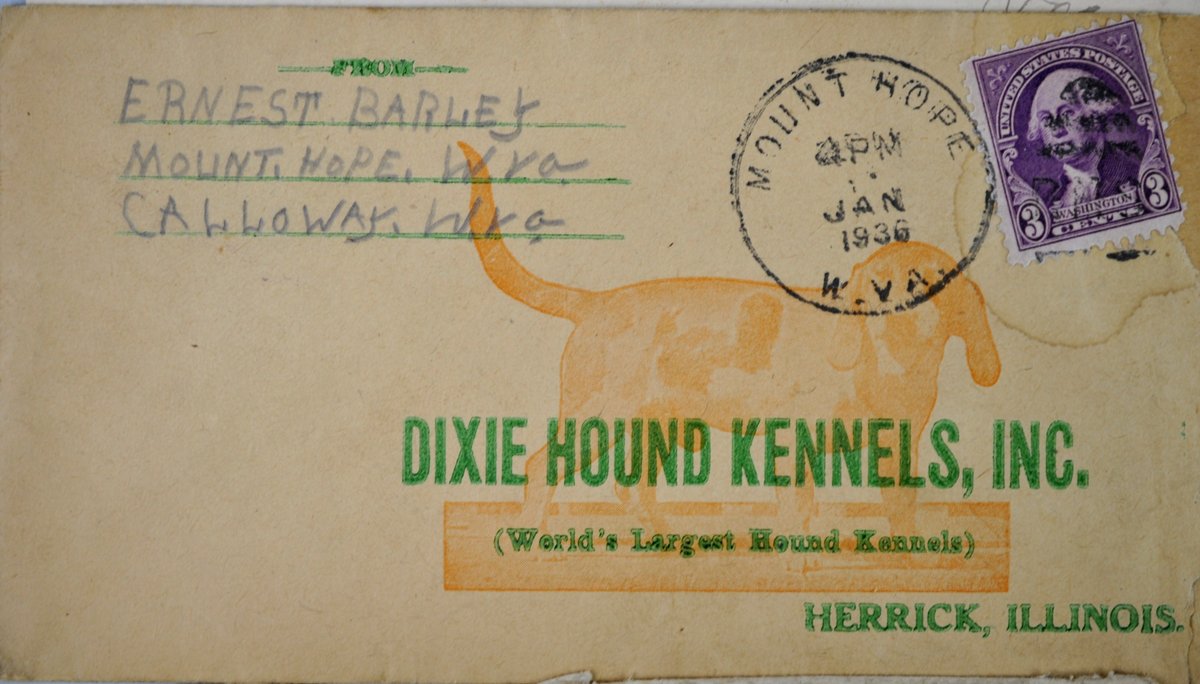 FROM
ERNEST BARLEY
MOUNT. HOPE. W va
CALLOWAY. W va
MOUNT HOPE
4PM
JAN
1936
W.VA.
UNITED STATES POSTAGE
3 WASHINGTON 3
CENTS
DIXIE HOUND KENNELS, INC.
(World's Largest Hound Kennels)
HERRICK, ILLINOIS.